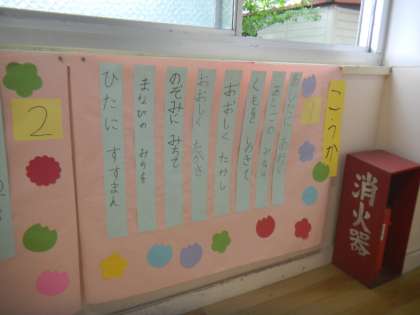 こうか
くもを ぬきて
おおしく たかし
おおしく たかき
のぞみに みちて
まなびの みちを
ひたに すすまん
2
消火器